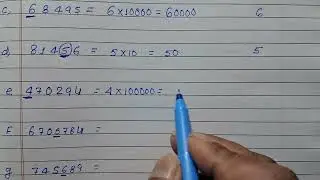 c. 68495 = 6×10000 = 60000 6
d. 81456 = 5×10 = 50 5
e. 470294 = 4×100000 =
f 6705784 =
g. 745689 =